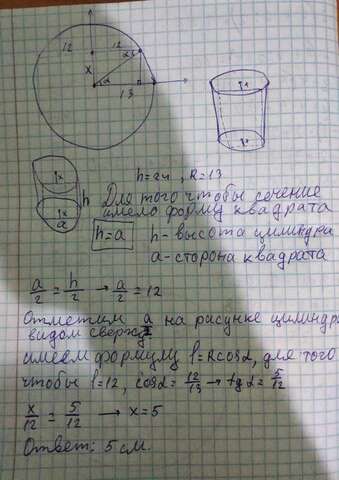 12 12
x 13
α
13
h
a
h=24, R=13
Для того чтобы сечение
имело форму квадрата
h=a h- высота цилиндра
a- сторона квадрата
a/2 = h/2 → a/2 = 12
Отметим a на рисунке цилиндра
видом сверху
имеем формулу l=Rcosα, для того
чтобы l=12, cosα= 12/13 → tgα= 5/12
x/12 = 5/12 → x=5
Ответ: 5 см.